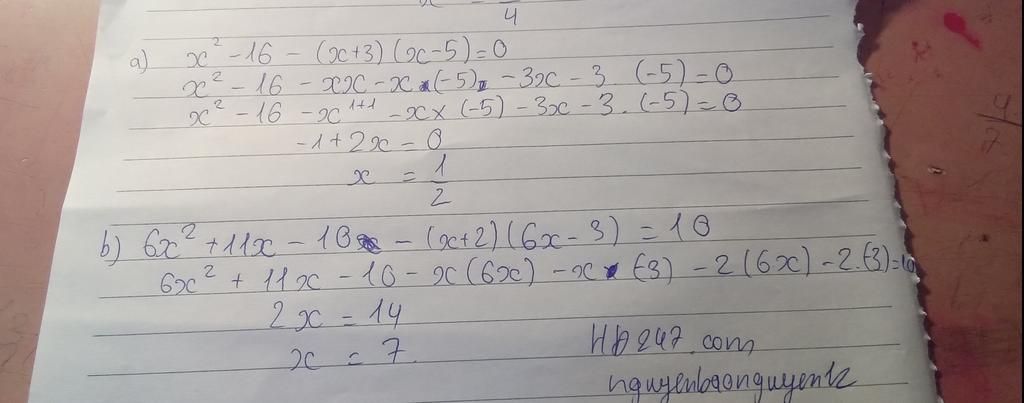 4
a) x² - 16 - (x+3) (x-5) = 0
x² - 16 - xx - x.(-5) - 3x - 3 (-5) = 0
x² - 16 - x¹⁺¹ - x × (-5) - 3x - 3. (-5) = 0
-1 + 2x = 0
x = 1/2
b) 6x² + 11x - 10 - (x+2) (6x - 3) = 10
6x² + 11x - 10 - x (6x) - x . (-3) - 2 (6x) - 2.(-3) = 10
2x = 14
x = 7.
Hb247.com
nguyenbaonguyen12
4/7